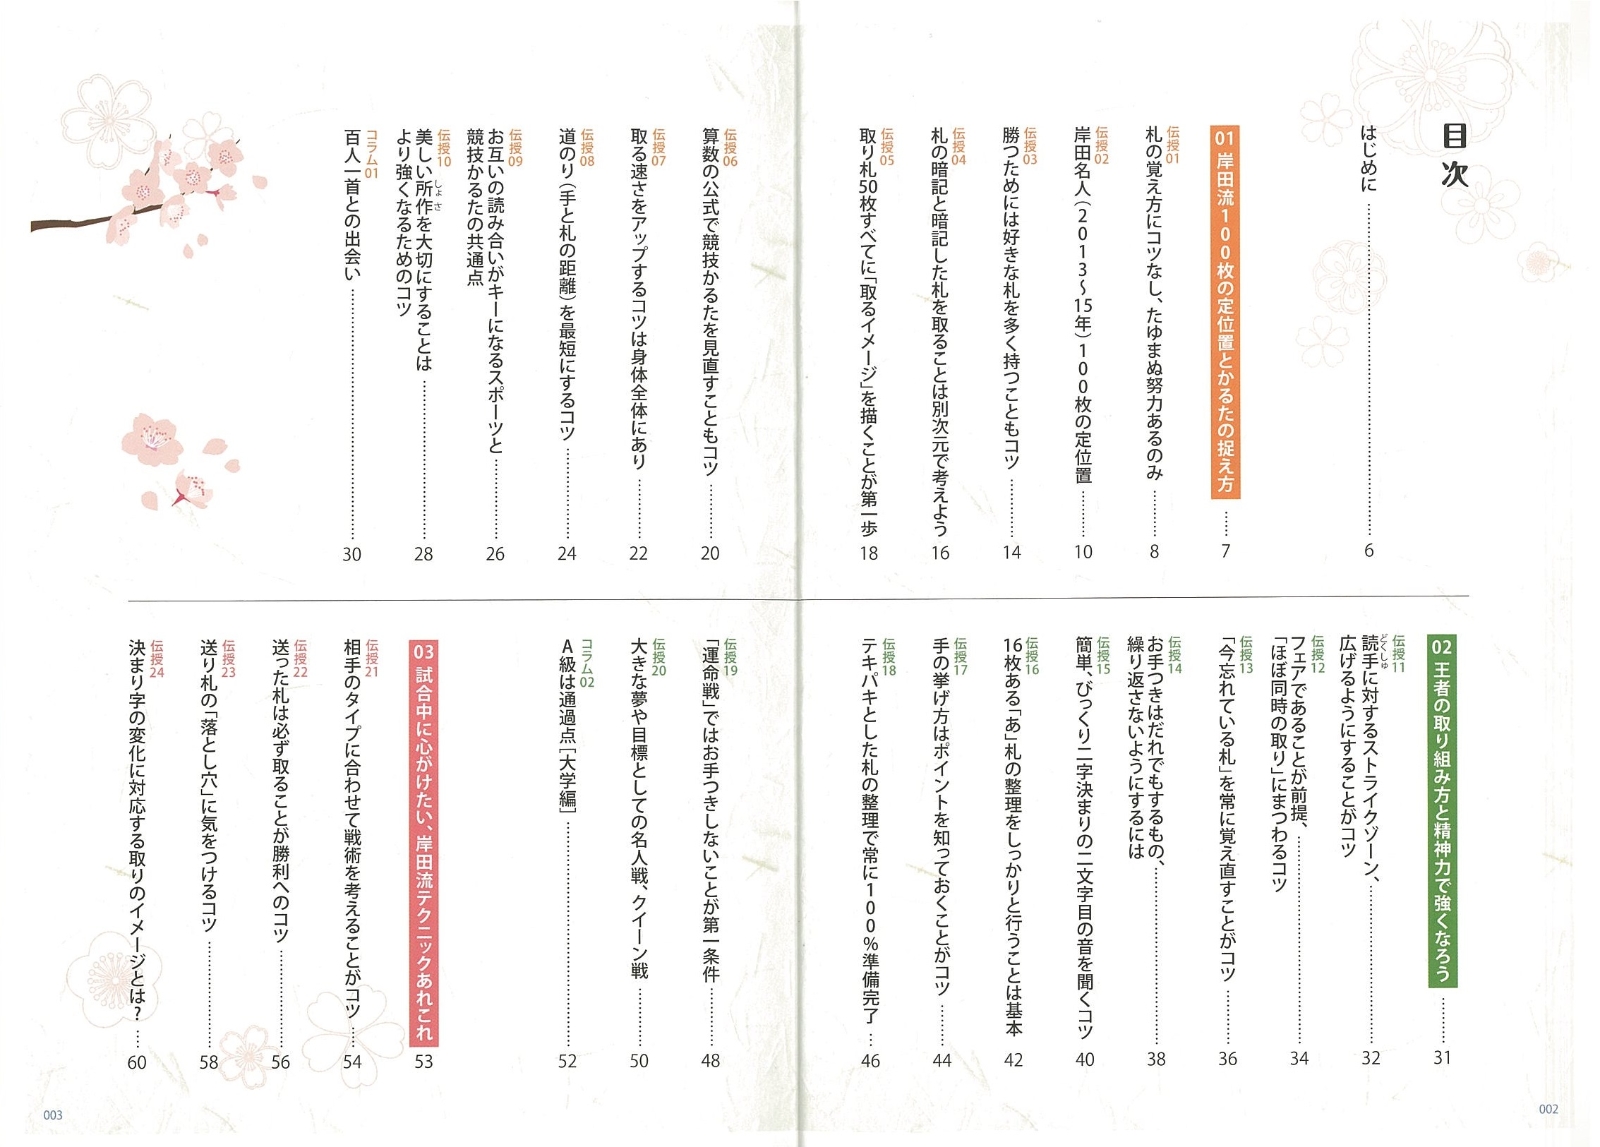 目次
はじめに……6
01 岸田流100枚の定位置とかるたの捉え方……7
伝授01
札の覚え方にコツなし、たゆまぬ努力あるのみ……8
伝授02
岸田名人（2013〜15年）100枚の定位置……10
伝授03
勝つためには好きな札を多く持つこともコツ……14
伝授04
札の暗記と暗記した札を取ることは別次元で考えよう 16
伝授05
取り札50枚すべてに「取るイメージ」を描くことが第一歩 18
伝授06
算数の公式で競技かるたを見直すこともコツ……20
伝授07
取る速さをアップするコツは身体全体にあり……22
伝授08
道のり（手と札の距離）を最短にするコツ……24
伝授09
お互いの読み合いがキーになるスポーツと……26
競技かるたの共通点
伝授10
美しい所作を大切にすることは……28
しょさ
より強くなるためのコツ
コラム01
百人一首との出会い……30
02 王者の取り組み方と精神力で強くなろう……31
伝授11
読手に対するストライクゾーン、……32
どくしゅ
広げるようにすることがコツ
伝授12
フェアであることが前提、……34
「ほぼ同時の取り」にまつわるコツ
伝授13
「今忘れている札」を常に覚え直すことがコツ……36
伝授14
お手つきはだれでもするもの、……38
繰り返さないようにするには
伝授15
簡単、びっくり二字決まりの二文字目の音を聞くコツ 40
伝授16
16枚ある「あ」札の整理をしっかりと行うことは基本 42
伝授17
手の挙げ方はポイントを知っておくことがコツ……44
伝授18
テキパキとした札の整理で常に100％準備完了…46
伝授19
「運命戦」ではお手つきしないことが第一条件……48
伝授20
大きな夢や目標としての名人戦、クイーン戦……50
コラム02
A級は通過点［大学編］……52
03 試合中に心がけたい、岸田流テクニックあれこれ 53
伝授21
相手のタイプに合わせて戦術を考えることがコツ…54
伝授22
送った札は必ず取ることが勝利へのコツ……56
伝授23
送り札の「落とし穴」に気をつけるコツ……58
伝授24
決まり字の変化に対応する取りのイメージとは？…60
002
003